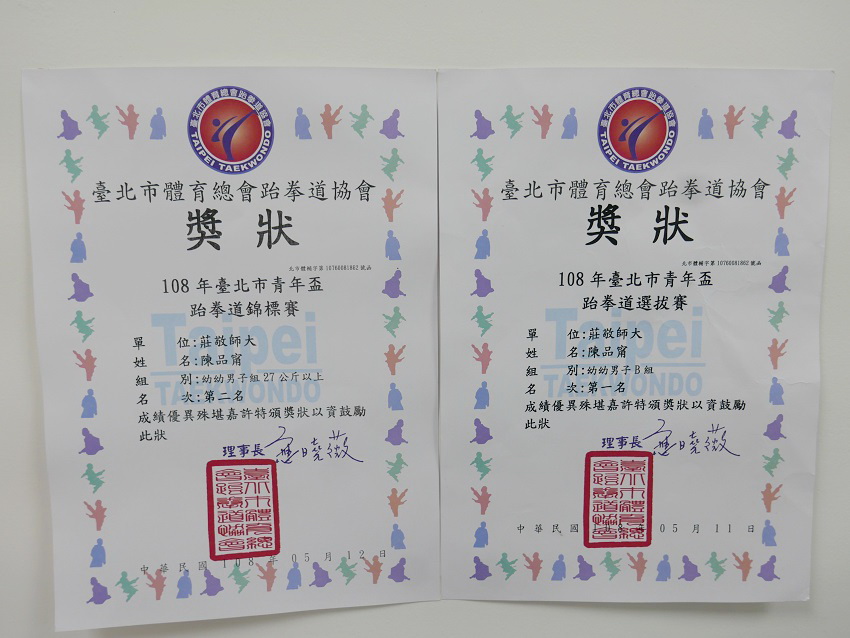 臺北市體育總會跆拳道協會
TAIPEI TAEKWONDO
臺北市體育總會跆拳道協會
獎狀
北市體輔字第10766081862號函
108年臺北市青年盃
跆拳道錦標賽
Taipei
TAEKWONDO
單 位:莊敬師大
姓 名:陳品甯
組 別:幼幼男子組27公斤以上
名 次:第二名
成績優異殊堪嘉許特頒獎狀以資鼓勵
此狀
理事長
臺北市體育總會跆拳道協會
中華民國 108 年 05 月 12 日
臺北市體育總會跆拳道協會
TAIPEI TAEKWONDO
臺北市體育總會跆拳道協會
獎狀
北市體輔字第10766081862號函
108年臺北市青年盃
跆拳道選拔賽
Taipei
TAEKWONDO
單 位:莊敬師大
姓 名:陳品甯
組 別:幼幼男子B組
名 次:第一名
成績優異殊堪嘉許特頒獎狀以資鼓勵
此狀
理事長
臺北市體育總會跆拳道協會
中華民國 108 年 05 月 11 日